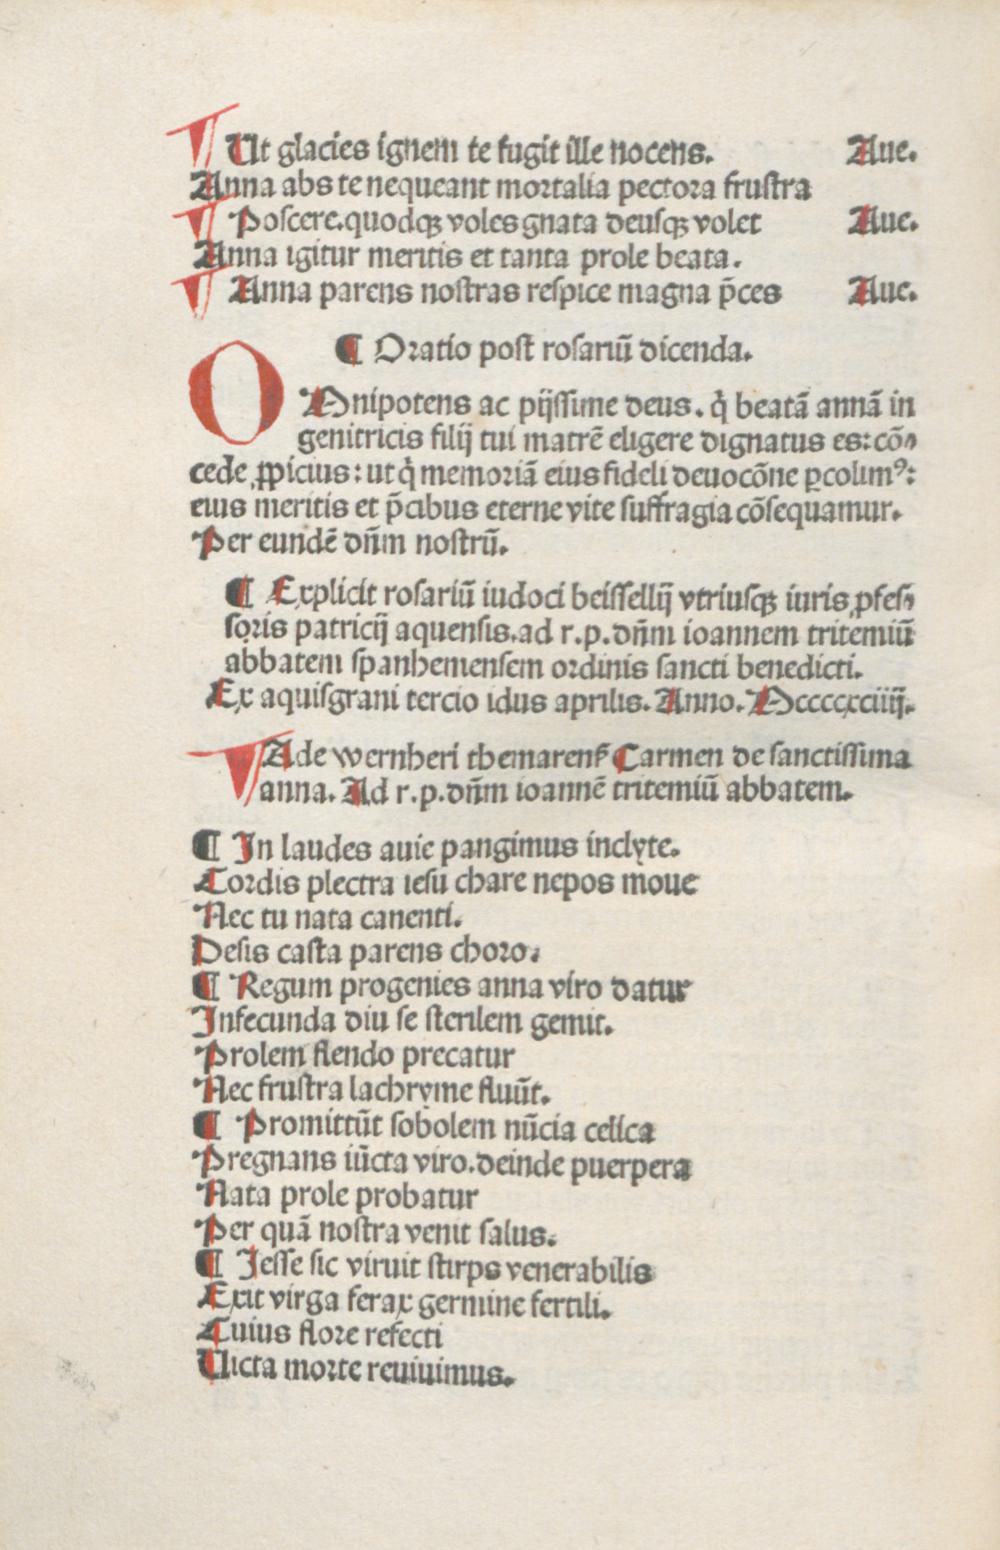 ¶ Ut glacies ignem te fugit ille nocens. Aue.
Anna abs te nequeant mortalia pectora frustra
¶ Poscere. quodqꝫ voles gnata deusqꝫ volet Aue.
Anna igitur meritis et tanta prole beata.
¶ Anna parens nostras respice magna p̄ces Aue.
¶ Oratio post rosariū dicenda.
OMnipotens ac pijssime deus. q̇ beatā annā in
genitricis filij tui matrē eligere dignatus es: cō⸗
cede ꝓpicius: ut q̇ memoriā eius fideli deuocōne ꝑcolimꝰ:
eius meritis et p̄cibus eterne vite suffragia cōsequamur.
Per eundē dn̄m nostrū.
¶ Explicit rosariū iudoci beissellij vtriusqꝫ iuris ꝓfes⸗
soris patricij aquensis. ad r. p. dn̄m ioannem tritemiū
abbatem spanhemensem ordinis sancti benedicti.
Ex aquisgrani tercio idus aprilis. Anno. Mccccxciiij.
¶ Ade wernheri themarenẜ Carmen de sanctissima
anna. Ad r. p. dn̄m ioannē tritemiū abbatem.
¶ In laudes auie pangimus inclyte.
Cordis plectra iesu chare nepos moue
Nec tu nata canenti.
Desis casta parens choro.
¶ Regum progenies anna viro datur
Infecunda diu se sterilem gemit.
Prolem flendo precatur
Nec frustra lachryme fluūt.
¶ Promittūt sobolem nūcia celica
Pregnans iūcta viro. deinde puerpera
Nata prole probatur
Per quā nostra venit salus.
¶ Jesse sic viruit stirps venerabilis
Exit virga ferax germine fertili.
Cuius flore refecti
Uicta morte reuiuimus.